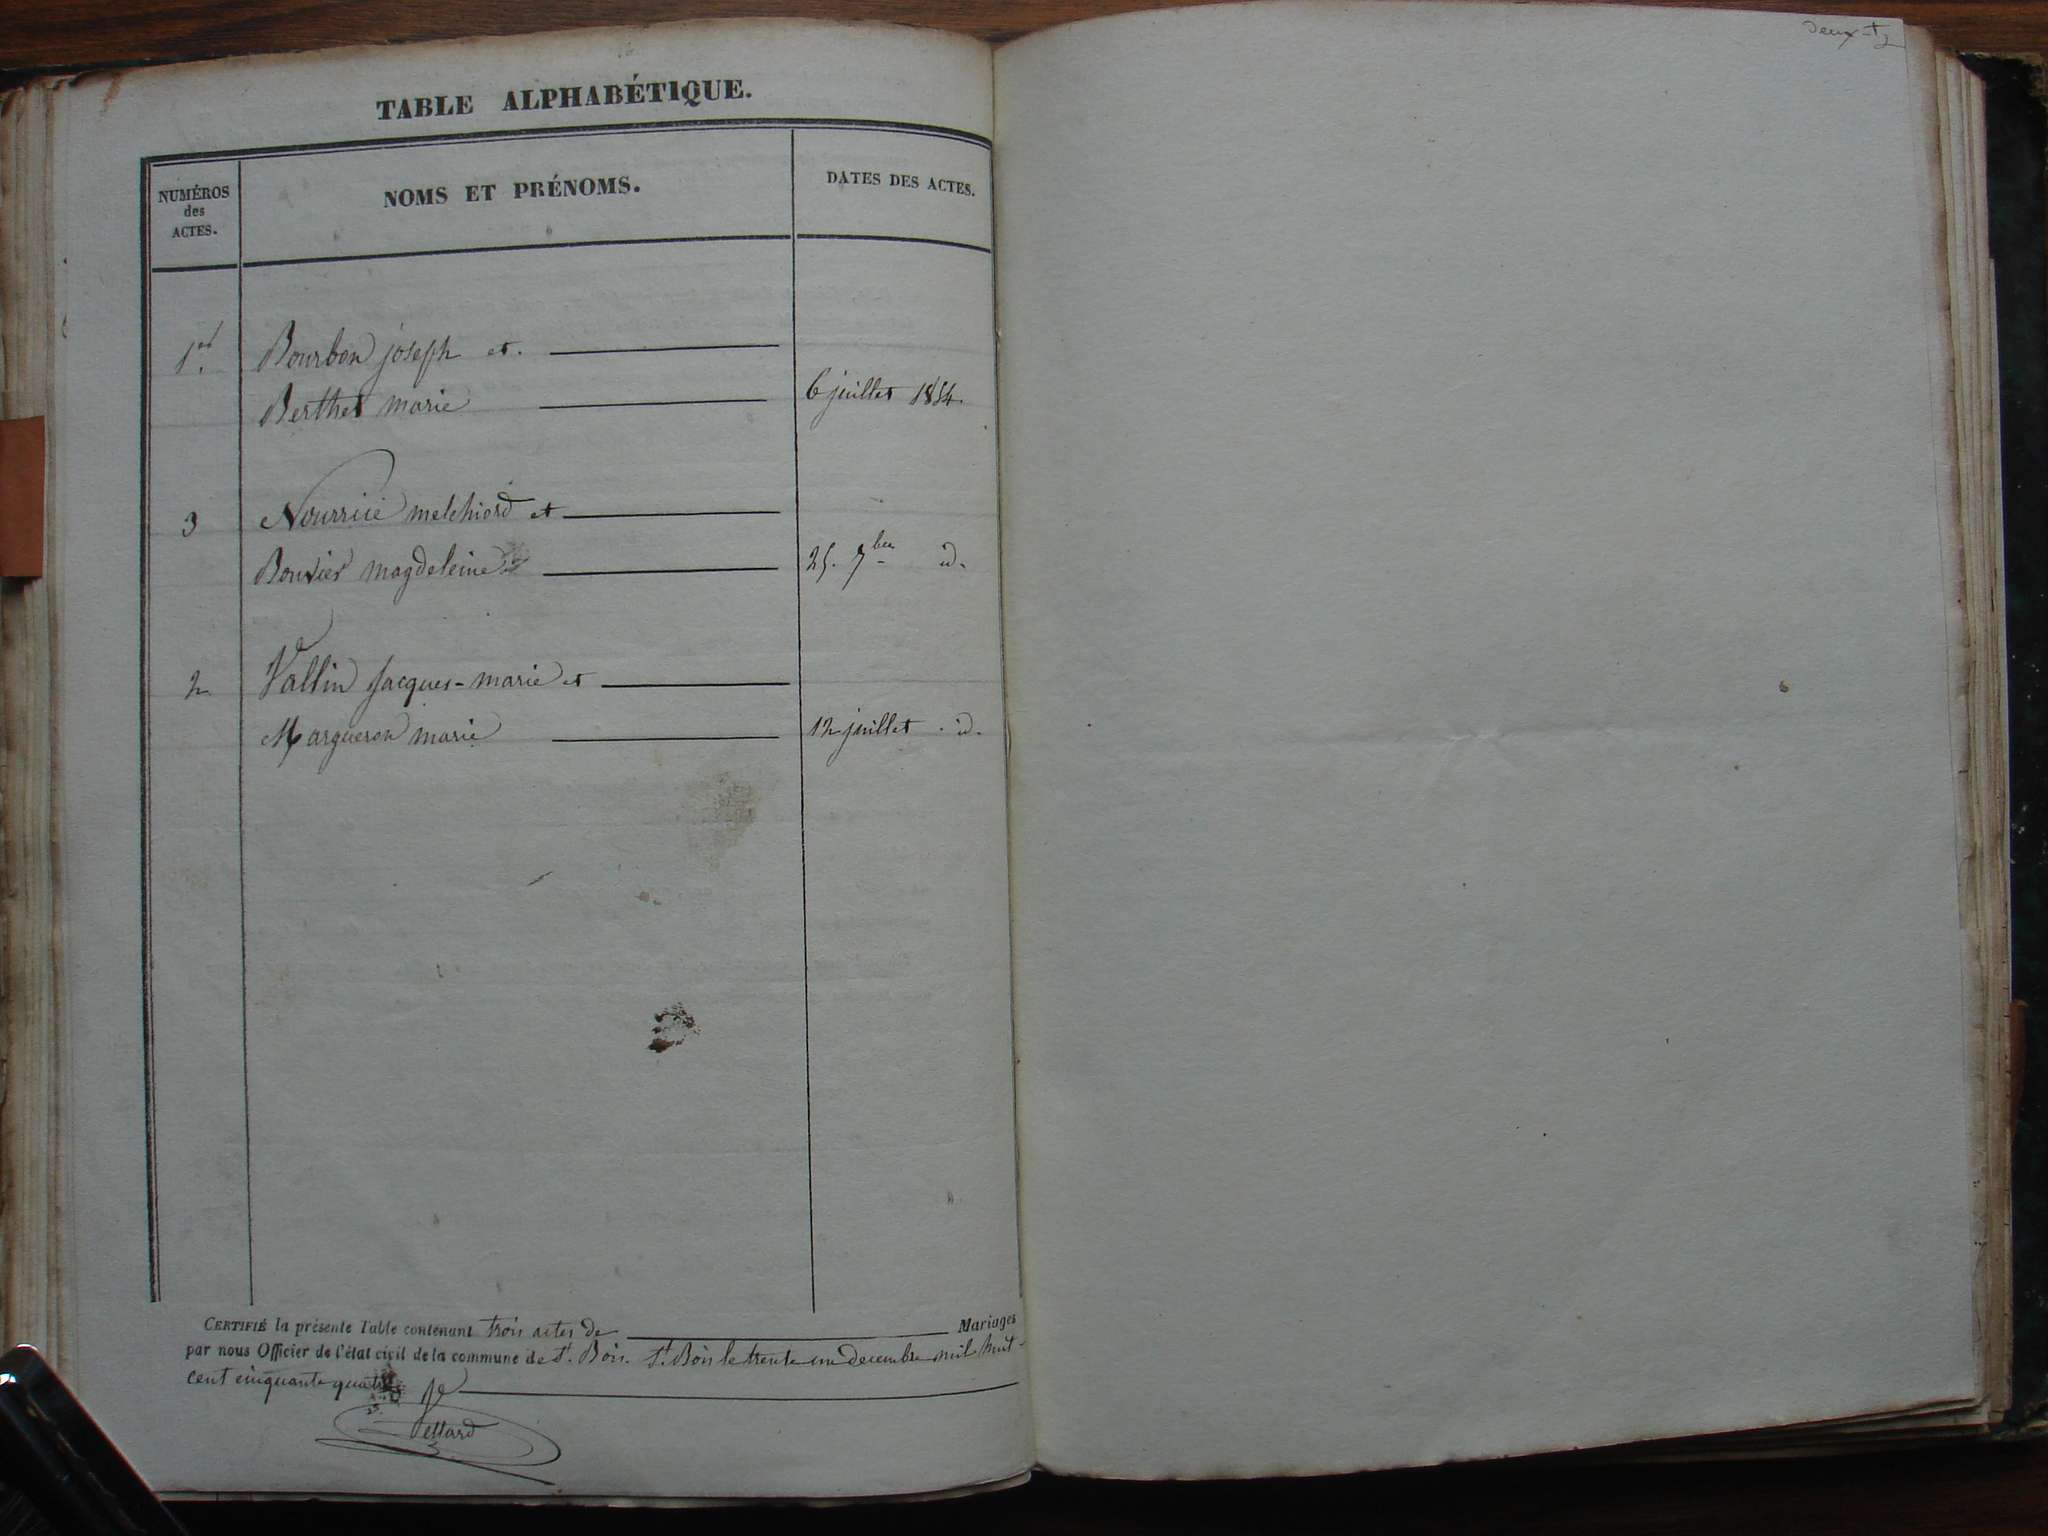 TABLE ALPHABÉTIQUE.
NUMÉROS
des
ACTES.
NOMS ET PRÉNOMS.
DATES DES ACTES.
1er. Bourbon joseph et.
Berthet marie 6 juillet 1854.
3 Nourricé melchiord et
Bouvier magdeleine 25. 7bre id.
2 Vallin Jacques-marie et
Margueron marie 12 juillet. id.
CERTIFIÉ la présente Table contenant trois actes de Mariages
par nous Officier de l'état civil de la commune de St. Bois. St. Bois le trente un decembre mil huit-
cent cinquante quatre